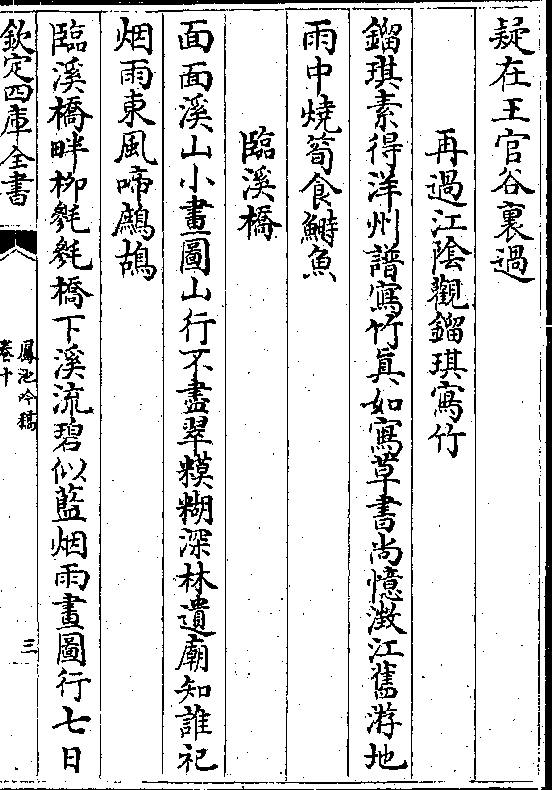 疑在王官谷裏過
再過江陰觀鎦琪寫竹
鎦琪素得洋州譜寫竹真如寫草書尚憶澂江舊游地
雨中燒筍食鰣魚
臨溪橋
面面溪山小畫圖山行不盡翠糢糊深林遺廟知誰祀
烟雨東風啼鷓鴣
臨溪橋畔柳毿毿橋下溪流碧似藍烟雨畫圖行七日
欽定四庫全書
鳳池吟稿
卷十
三